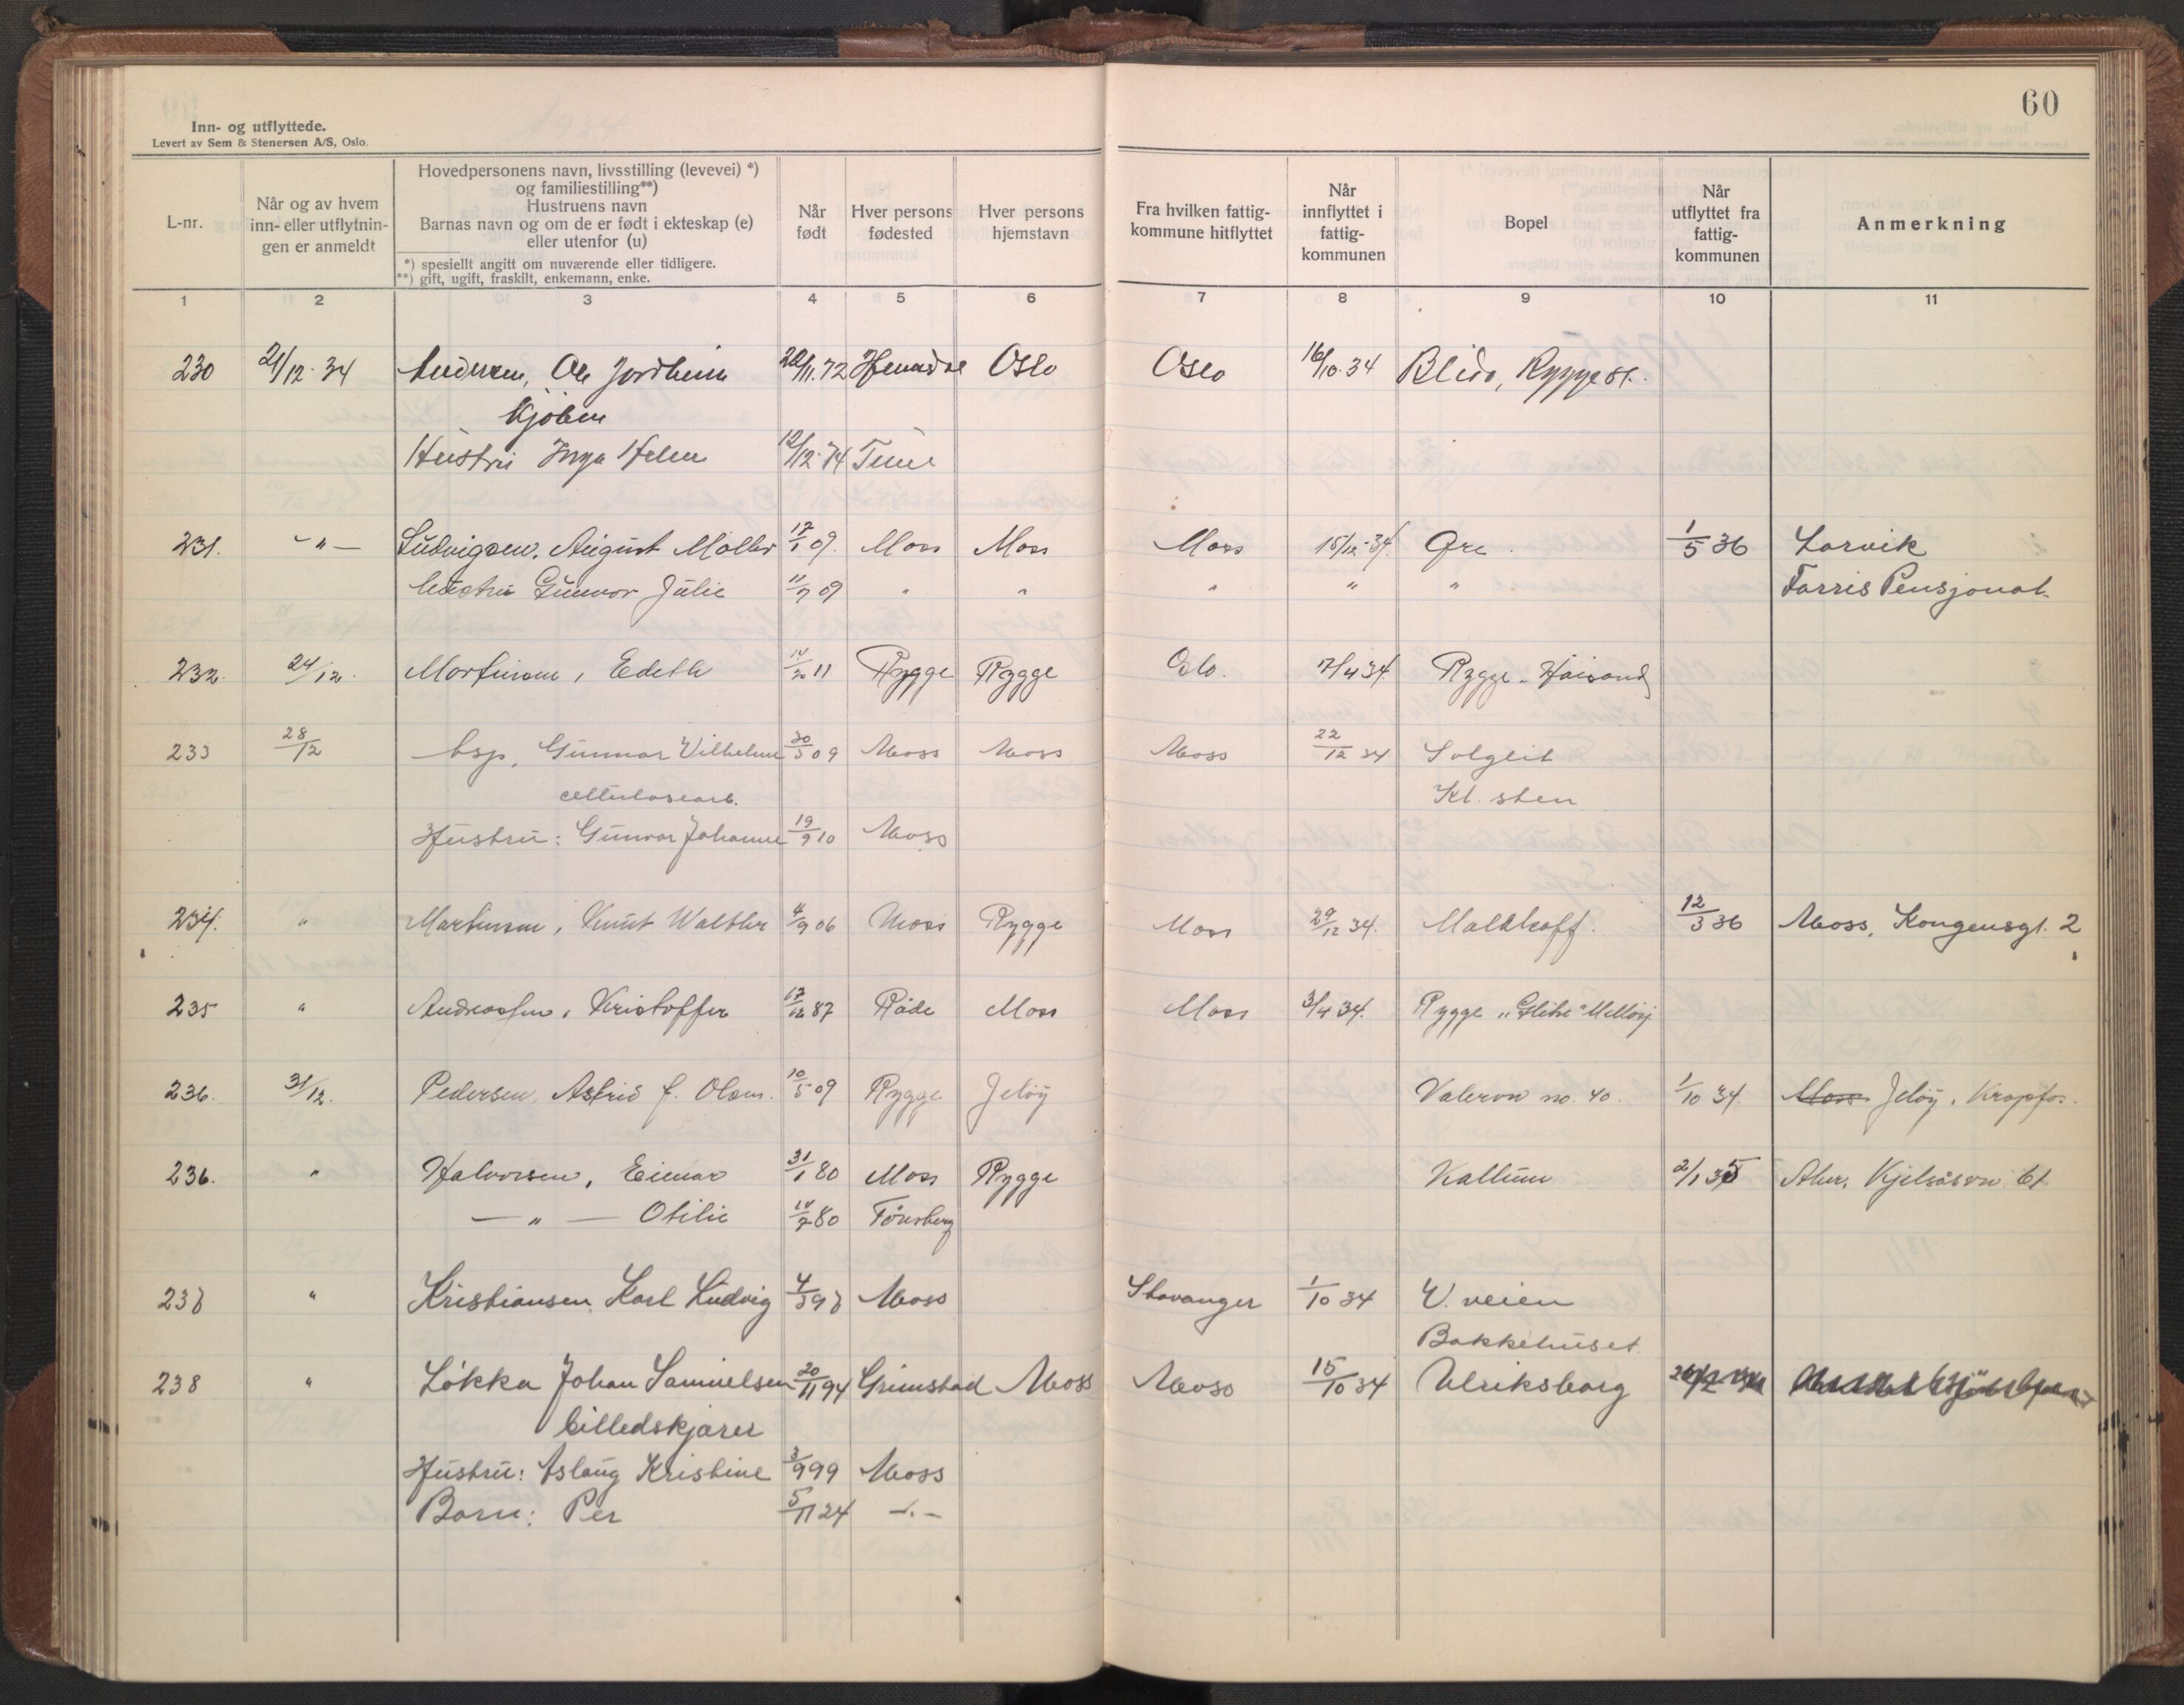 60
Inn- og utflyttede.
Levert av Sem & Stenersen A/S, Oslo.
L-nr.
Når og av hvem inn- eller utflytnin- gen er anmeldt
Hovedpersonens navn, livsstilling (levevei) *)
og familiestilling**)
Hustruens navn
Barnas navn og om de er født i ekteskap (e)
eller utenfor (u)
*) spesiellt angitt om nuværende eller tidligere.
**) gift, ugift, fraskilt, enkemann, enke.
Når født
Hver persons fødested
Hver persons hjemstavn
Fra hvilken fattig- kommune hitflyttet
Når innflyttet i fattig- kommunen
Bopel
Når utflyttet fra fattig- kommunen
Anmerkning
1 2 3 4 5 6 7 8 9 10 11
230 21/12-34 Andersen, Ole Jordheim /11.72 Oslo Oslo 16/10-34 Rygge st.
Hustru Inga Helen 12/12-74
231. -"- Ludvigsen, August Møller 17/1 09. Moss Moss Moss 15/12-34. Øre. 1/5 36 Larvik
hustru Gunvor Julie 11/7 09 " " " " " Farris Pensjonat
232. 24/12. Martinsen, Edith 11 Rygge Rygge Oslo. 7/4 34 Rygge -
233 28/12 Gunnar Vilhelm 30/5 09 Moss Moss Moss 22/12 34 Solglit
cellulosearb. Kl. sten
Hustru: Gunvor Johanne 19/9 10 Moss
234. " Martinsen, Knut Walther 4/9 06 Moss Rygge Moss 29/12 34. 12/3 36 Moss, Kongensgt. 2
235 " Andreassen, Kristoffer 17/12 87 Råde Moss Moss 3/4 34. Rygge
236. 31/12. Pedersen, Astrid f. Olsen. 10/5 09 Rygge Jeløy Valervn no. 40. 1/10 34. Moss Jeløy, Krapfos.
236. " Halvorsen, Einar 31/1 80 Moss Rygge Kallum 2/1 35 Aker, Kjelsåsvn 61
-"- Otilie 80 Tønsberg
237 " Kristiansen Karl Ludvig 4/3 97 Moss Stavanger 1/10 34 V. veien
Bakkehuset
238 " Løkka Johan Samuelsen 20/11 94 Grimstad Moss Moss 15/10 34 Ulriksborg
billedskjærer
Hustru: Aslaug Kristine 3/9 99 Moss
Barn: Per 5/11 24 -"-